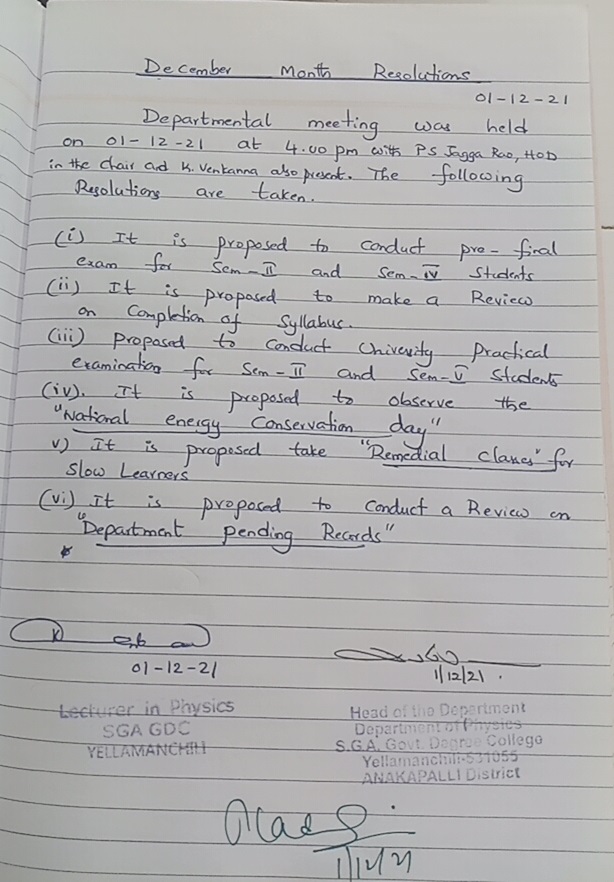 December Month Resolutions
01-12-21
Departmental meeting was held
on 01-12-21 at 4.00 pm with PS Jagga Rao, HOD
in the chair and K. Venkanna also present. The following
Resolutions are taken.
(i) It is proposed to conduct pre-final
exam for Sem-II and Sem-IV Students
(ii) It is proposed to make a Review
on Completion of Syllabus.
(iii) proposed to conduct University Practical
examination for Sem-II and Sem-V Students
(iv). It is proposed to observe the
"National energy Conservation day"
v) It is proposed take "Remedial classes" for
Slow Learners
(vi) It is proposed to conduct a Review on
"Department pending Records"
01-12-21
1/12/21.
Lecturer in Physics
SGA GDC
YELLAMANCHILI
Head of the Department
Department of Physics
S.G.A. Govt. Degree College
Yellamanchili-531055
ANAKAPALLI District
1/12/21